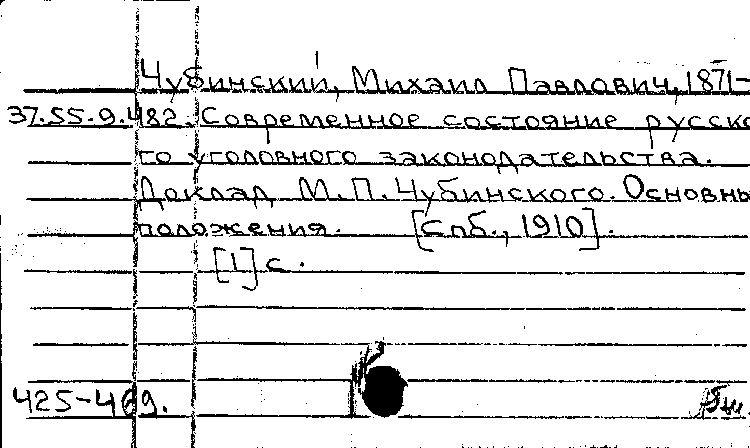 Чубинский, Михаил Павлович, 1871-
37.55.9.482. Современное состояние русско
го уголовного законодательства.
Доклад М.П.Чубинского. Основны
положения. [Спб., 1910].
[1] с.
425-469.